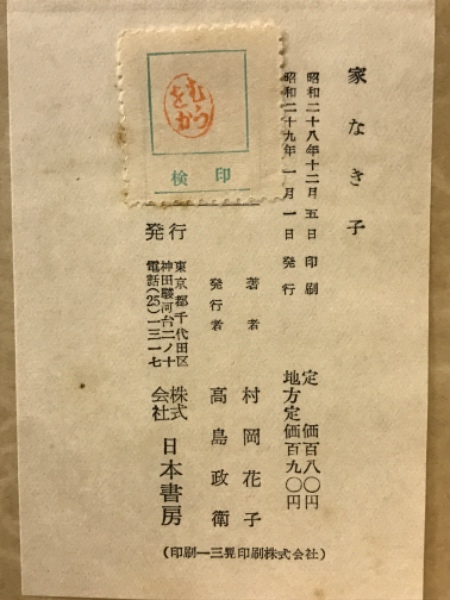 家なき子
昭和二十八年十二月五日印刷
昭和二十九年一月一日発行
定価百八〇円
地方定価百九〇円
著者 村岡花子
発行者 高島政衛
発行
東京都千代田区
神田駿河台二ノ十
電話(25)一三一七
株式会社 日本書房
(印刷—三晃印刷株式会社)
むらをか
検印